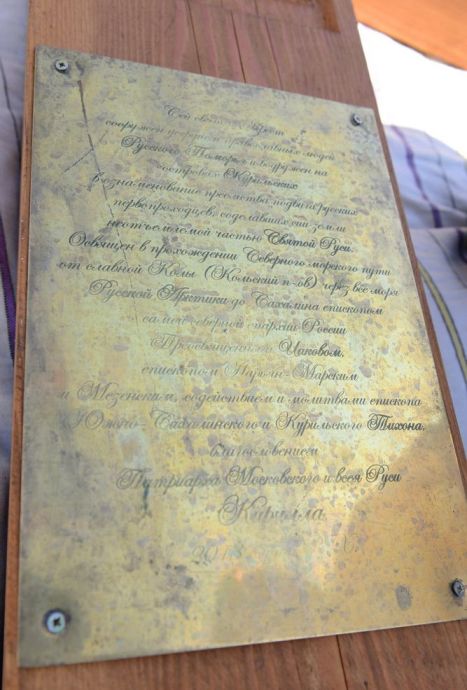 Сей святой Крест
сооружен усердием православных людей
Русского Поморья и водружен на
островах Курильских
в ознаменование преемства подвигов русских
первопроходцев, соделавших сии земли
неотъемлемой частью Святой Руси.
Освящен в прохождении Северного морского пути
от славной Колы (Кольский п-ов) через все моря
Русской Арктики до Сахалина епископом
самой северной епархии России
Преосвященным Иаковом,
епископом Нарьян-Марским
и Мезенским, содействием и молитвами епископа
Южно-Сахалинского и Курильского Тихона,
благословением
Патриарха Московского и всея Руси
Кирилла